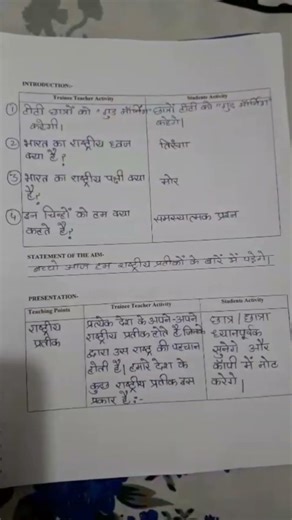 INTRODUCTION:-
Trainee Teacher Activity Students Activity
① टीची छात्रों को "गुड मॉर्निंग" छात्रों टीची को "गुड मॉर्निंग"
कहेगी। कहेंगे।
② भारत का राष्ट्रीय ध्वज तिरंगा
क्या है?
③ भारत का राष्ट्रीय पक्षी क्या मोर
है?
④ इन चिन्हों को हम क्या समस्यात्मक प्रश्न
कहते हैं?
STATEMENT OF THE AIM-
बच्चो आज हम राष्ट्रीय प्रतीकों के बारें में पड़ेगे।
PRESENTATION-
Teaching Points Trainee Teacher Activity Students Activity
राष्ट्रीय प्रत्येक देश के अपने-अपने छात्र / छात्रा
प्रतीक राष्ट्रीय प्रतीक होते हैं जिनके ध्यानपूर्वक
द्वारा उस राष्ट्र की पहचान सुनेगे और
होती है। हमारे देश के कॉपी में नोट
कुछ राष्ट्रीय प्रतीक इस करेगे।
प्रकार है:-